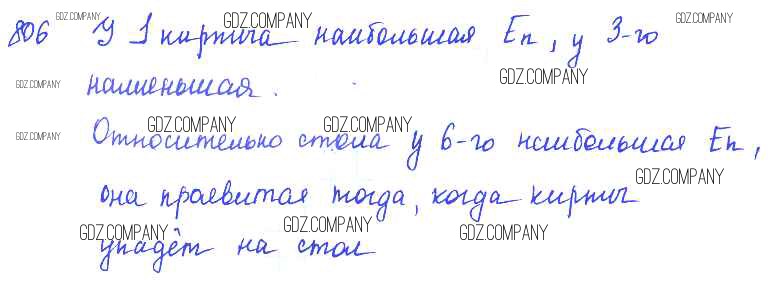 806 У 1 кирпича наибольшая Еп, у 3-го
наименьшая.
Относительно стола у 6-го наибольшая Еп,
она проявится тогда, когда кирпич
упадёт на стол
GDZ.COMPANY GDZ.COMPANY GDZ.COMPANY
GDZ.COMPANY GDZ.COMPANY
GDZ.COMPANY GDZ.COMPANY GDZ.COMPANY
GDZ.COMPANY
GDZ.COMPANY GDZ.COMPANY GDZ.COMPANY